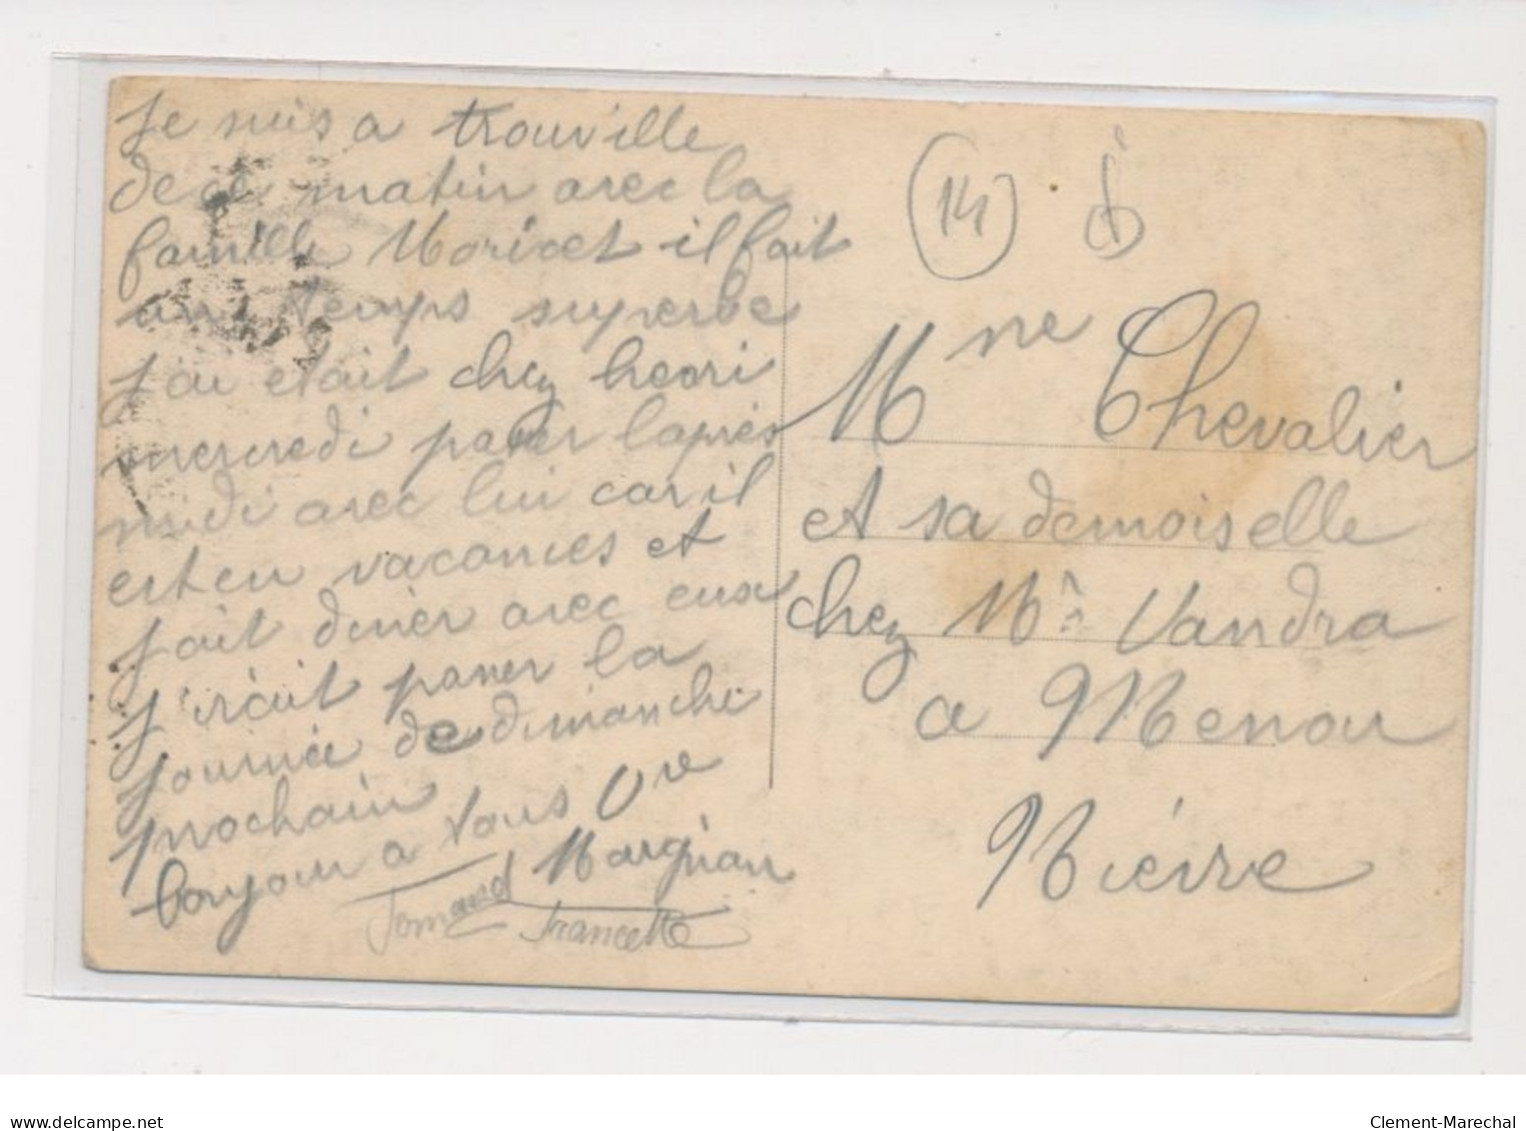 Je suis a trouville
de ce matin avec la
famille Moricet il fait
un temps superbe
j'ai etait chez henri
mercredi passer laprès
midi avec lui car il
est en vacances et
fait diner avec eux
j'irait passer la
journée de dimanche
prochain
bonjour a vous
Marginan
francette
14
Mme Chevalier
et sa demoiselle
chez Mr Vandra
a Menou
Nièvre
delcampe.net
Clement-Marechal